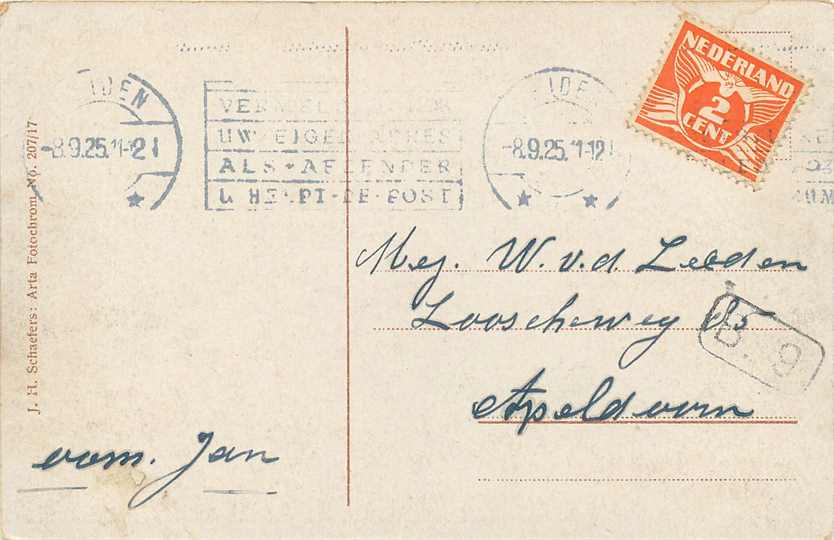 J. H. Schaefers: Arta Fotochrom No. 207/17
IDEN
-8.9.25.11-12
UW EIGEN ADRES
ALS AFZENDER
U HELPT DE POST
IDE
-8.9.25.11-12
NEDERLAND
2
CENT
Mej. W. v. d. Leeden
Looscheweg 85
Apeldoorn
B. 9
oom. Jan